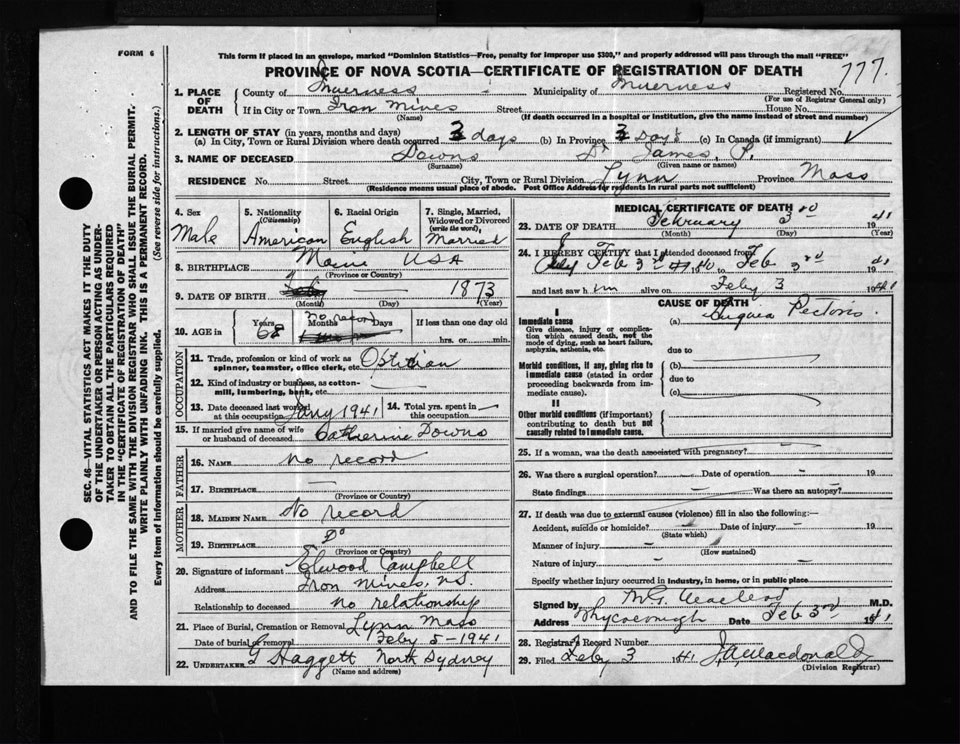 FORM 6
This form if placed in an envelope, marked "Dominion Statistics—Free, penalty for improper use $300," and properly addressed will pass through the mail "FREE"
PROVINCE OF NOVA SCOTIA—CERTIFICATE OF REGISTRATION OF DEATH
777.
1. PLACE OF DEATH County of Inverness Municipality of Inverness Registered No.
(For use of Registrar General only)
If in City or Town Iron Mines Street House No.
(Name) (If death occurred in a hospital or institution, give the name instead of street and number)
2. LENGTH OF STAY (in years, months and days)
(a) In City, Town or Rural Division where death occurred 3 days (b) In Province 3 Days (c) In Canada (if immigrant)
3. NAME OF DECEASED Downs Dr James, P.
(Surname) (Given name or names)
RESIDENCE No. Street City, Town or Rural Division Lynn Province Mass
(Residence means usual place of abode. Post Office Address for residents in rural parts not sufficient)
4. Sex Male
5. Nationality (Citizenship) American
6. Racial Origin English
7. Single, Married, Widowed or Divorced (write the word) Married
8. BIRTHPLACE Maine USA
(Province or Country)
9. DATE OF BIRTH 1873
(Month) (Day) (Year)
10. AGE in Years 68 Months Days no record If less than one day old hrs. or min.
OCCUPATION
11. Trade, profession or kind of work as spinner, teamster, office clerk, etc. Optician
12. Kind of industry or business, as cotton-mill, lumbering, bank, etc. —
13. Date deceased last worked at this occupation Jany 1941
14. Total yrs. spent in this occupation —
15. If married give name of wife or husband of deceased Catherine Downs
FATHER
16. NAME no record
17. BIRTHPLACE —
(Province or Country)
MOTHER
18. MAIDEN NAME No record
19. BIRTHPLACE Do
(Province or Country)
20. Signature of informant Elwood Campbell
Address Iron Mines, N.S.
Relationship to deceased no relationship
21. Place of Burial, Cremation or Removal Lynn Mass
Date of burial or removal Feby 5-1941
22. UNDERTAKER G Haggett North Sydney
(Name and address)
MEDICAL CERTIFICATE OF DEATH
23. DATE OF DEATH February 3rd 1941
(Month) (Day) (Year)
24. I HEREBY CERTIFY that I attended deceased from
Feb 3rd to Feb 3rd 1941
and last saw him alive on Feby 3 1941
CAUSE OF DEATH
I
Immediate cause
Give disease, injury or complication which caused death, not the mode of dying, such as heart failure, asphyxia, asthenia, etc.
(a) Angina Pectoris
due to
Morbid conditions, if any, giving rise to immediate cause (stated in order proceeding backwards from immediate cause).
(b)
due to
(c)
II
Other morbid conditions (if important) contributing to death but not causally related to immediate cause.
25. If a woman, was the death associated with pregnancy? —
26. Was there a surgical operation? — Date of operation - 19
State findings — Was there an autopsy? -
27. If death was due to external causes (violence) fill in also the following:—
Accident, suicide or homicide? — Date of injury — 19
(State which)
Manner of injury —
(How sustained)
Nature of injury —
Specify whether injury occurred in industry, in home, or in public place
Signed by M.D.
Address Whycocomagh Date Feb 3rd 1941
28. Registrar's Record Number
29. Filed Feby 3 1941 J.A. Macdonald
(Division Registrar)
SEC. 46—VITAL STATISTICS ACT MAKES IT THE DUTY
OF THE UNDERTAKER OR PERSON ACTING AS UNDER-
TAKER TO OBTAIN ALL THE PARTICULARS REQUIRED
IN THE "CERTIFICATE OF REGISTRATION OF DEATH"
AND TO FILE THE SAME WITH THE DIVISION REGISTRAR WHO SHALL ISSUE THE BURIAL PERMIT.
WRITE PLAINLY WITH UNFADING INK. THIS IS A PERMANENT RECORD.
Every item of Information should be carefully supplied. (See reverse side for instructions.)